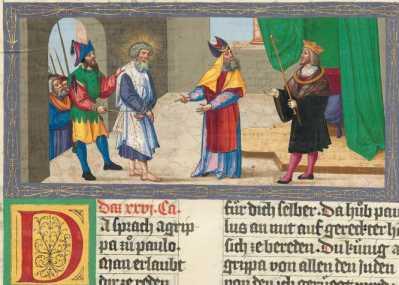 Daz xxvi. Ca.
D
A sprach agrip
pa zů paulo.
man erlaubt
dir ze reden
für dich selber. Da hůb pau
lus an mit auf gereckter h
sich ze bereden. Du künig a
grippa von allen den juden
von den ich